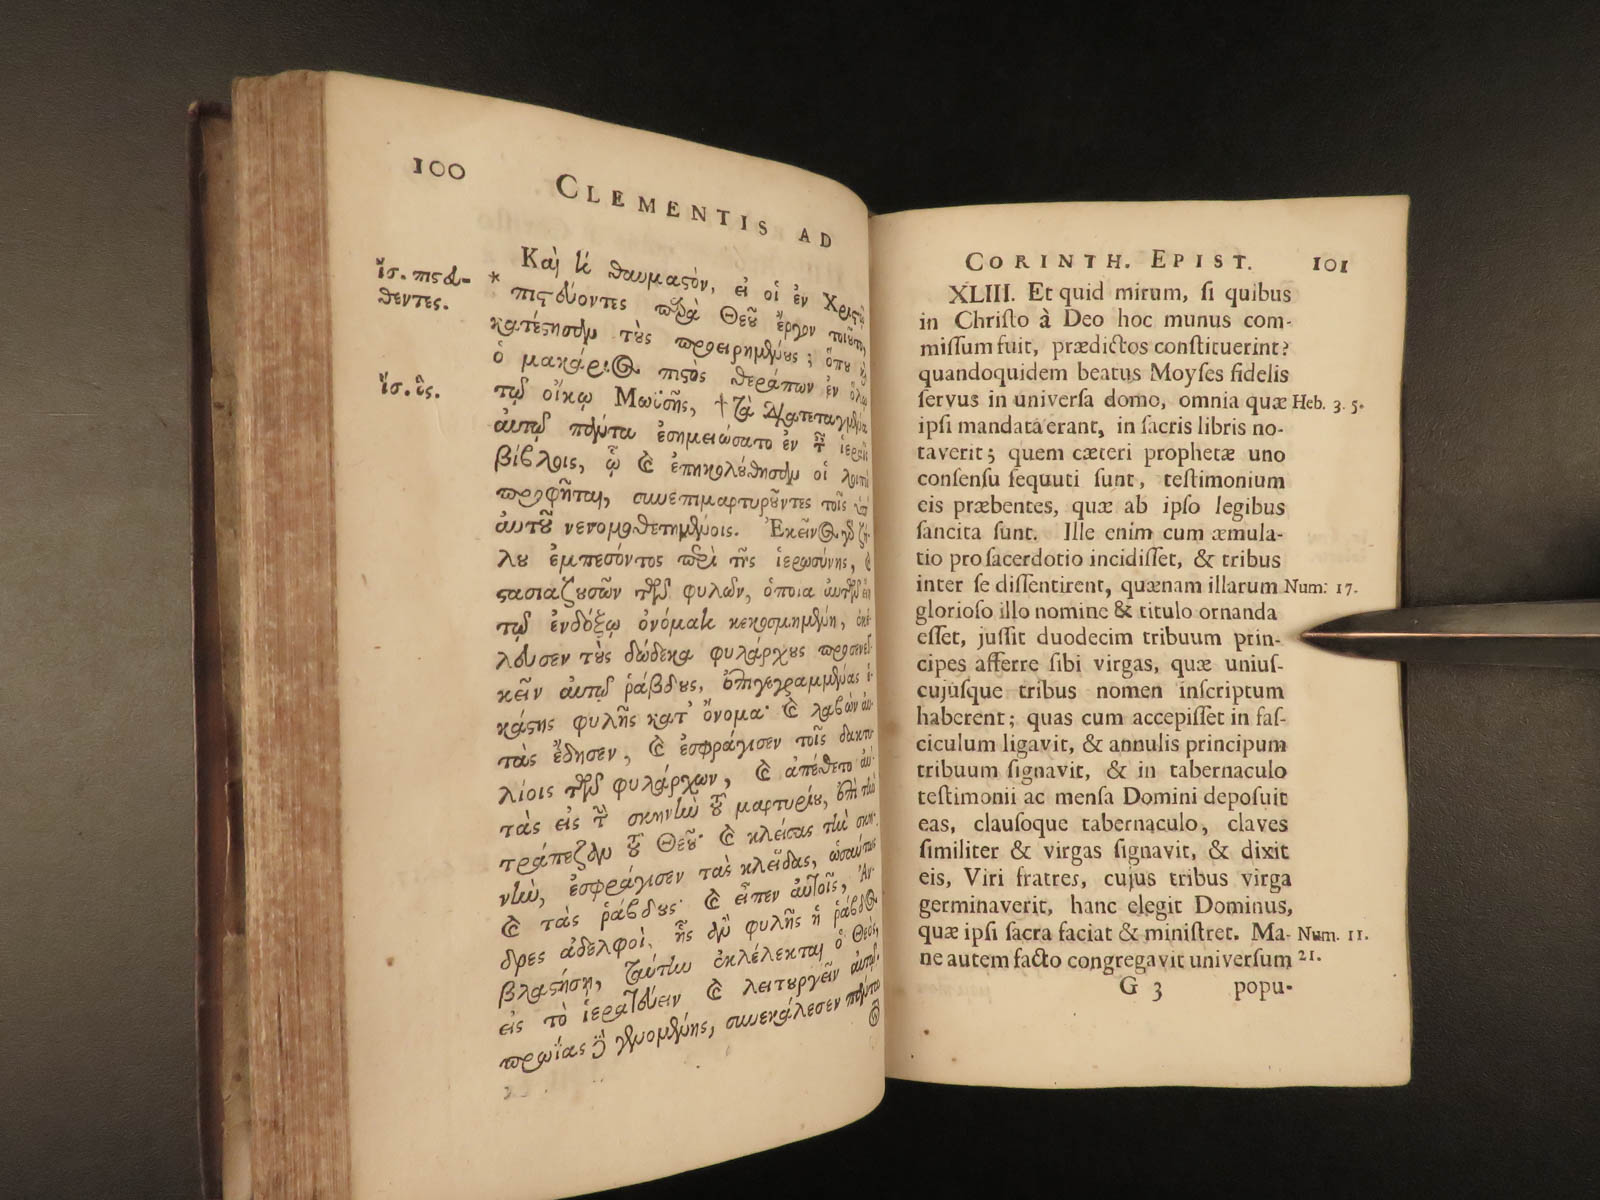 100 CLEMENTIS AD
Καὶ τί θαυμαστὸν, εἰ οἱ ἐν Χριστῷ
ἴσ. πιστευθέντες.
* πιστεύοντες παρὰ Θεοῦ ἔργον τοιοῦτο,
κατέστησαν τοὺς προειρημένους; ὅπου
ὁ μακάριος πιστὸς θεράπων ἐν ὅλῳ
ἴσ. ὃς.
τῷ οἴκῳ Μωϋσῆς, † τὰ διατεταγμένα
αὐτῷ πάντα ἐσημειώσατο ἐν τ ἱεραῖς
βίβλοις, ᾧ καὶ ἐπηκολούθησαν οἱ λοιποὶ
προφῆται, συνεπιμαρτυροῦντες τοῖς ὑπ'
αὐτοῦ νενομοθετημένοις. Ἐκεῖνος γὰρ ζή-
λου ἐμπεσόντος περὶ τῆς ἱερωσύνης, καὶ
στασιαζουσῶν τῶν φυλῶν, ὁποια αὐτῶν εἴη
τῷ ἐνδόξῳ ὀνόματι κεκοσμημένη, ἐκέ-
λευσεν τοὺς δώδεκα φυλάρχους προσενεγ-
κεῖν αὐτῷ ῥάβδους, ἐπιγεγραμμένας ἑ-
κάστης φυλῆς κατ' ὄνομα· καὶ λαβὼν αὐ-
τὰς ἔδησεν, καὶ ἐσφράγισεν τοῖς δακτυ-
λίοις τῶν φυλάρχων, καὶ ἀπέθετο αὐ-
τὰς εἰς τ σκηνὴν τοῦ μαρτυρίου, ἐπὶ τὴν
τράπεζαν τοῦ Θεοῦ· καὶ κλείσας τὴν σκη-
νὴν, ἐσφράγισεν τὰς κλεῖδας, ὡσαύτως
καὶ τὰς ῥάβδους· καὶ εἶπεν αὐτοῖς, Ἄν-
δρες ἀδελφοὶ, ἧς ἂν φυλῆς ἡ ῥάβδος
βλαστήσῃ, ταύτην ἐκλέλεκται ὁ Θεὸς,
εἰς τὸ ἱερατεύειν καὶ λειτουργεῖν αὐτῷ.
πρωΐας δὲ γενομένης, συνεκάλεσεν πάντα
CORINTH. EPIST. 101
XLIII. Et quid mirum, ſi quibus
in Chriſto à Deo hoc munus com-
miſſum fuit, prædictos conſtituerint?
quandoquidem beatus Moyſes fidelis
ſervus in univerſa domo, omnia quæ Heb. 3. 5.
ipſi mandata erant, in ſacris libris no-
taverit; quem cæteri prophetæ uno
conſenſu ſequuti ſunt, teſtimonium
eis præbentes, quæ ab ipſo legibus
ſancita ſunt. Ille enim cum æmula-
tio pro ſacerdotio incidiſſet, & tribus
inter ſe diſſentirent, quænam illarum Num: 17.
glorioſo illo nomine & titulo ornanda
eſſet, juſſit duodecim tribuum prin-
cipes afferre ſibi virgas, quæ uniuſ-
cujúſque tribus nomen inſcriptum
haberent; quas cum accepiſſet in faſ-
ciculum ligavit, & annulis principum
tribuum ſignavit, & in tabernaculo
teſtimonii ac menſa Domini depoſuit
eas, clauſoque tabernaculo, claves
ſimiliter & virgas ſignavit, & dixit
eis, Viri fratres, cujus tribus virga
germinaverit, hanc elegit Dominus,
quæ ipſi ſacra faciat & miniſtret. Ma- Num. 11.
ne autem facto congregavit univerſum 21.
G 3 popu-